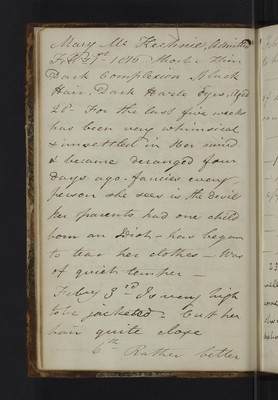 Mary Mc Kechnie, Admitted
1816 - Short - Thin
Dark Complexion Black
Hair - Dark Hazle Eyes, Aged
28 - For the last five weeks
has been very whimsical
& unsettled in Her mind
& became deranged four
days ago - fancies every
person she sees is the devil
Her parents had one child
born an Idiot - has begun
to tear her clothes - Was
of quiet temper -
Febry 3rd Is very high
to be jacketed - Cut her
hair quite close
6th Rather better